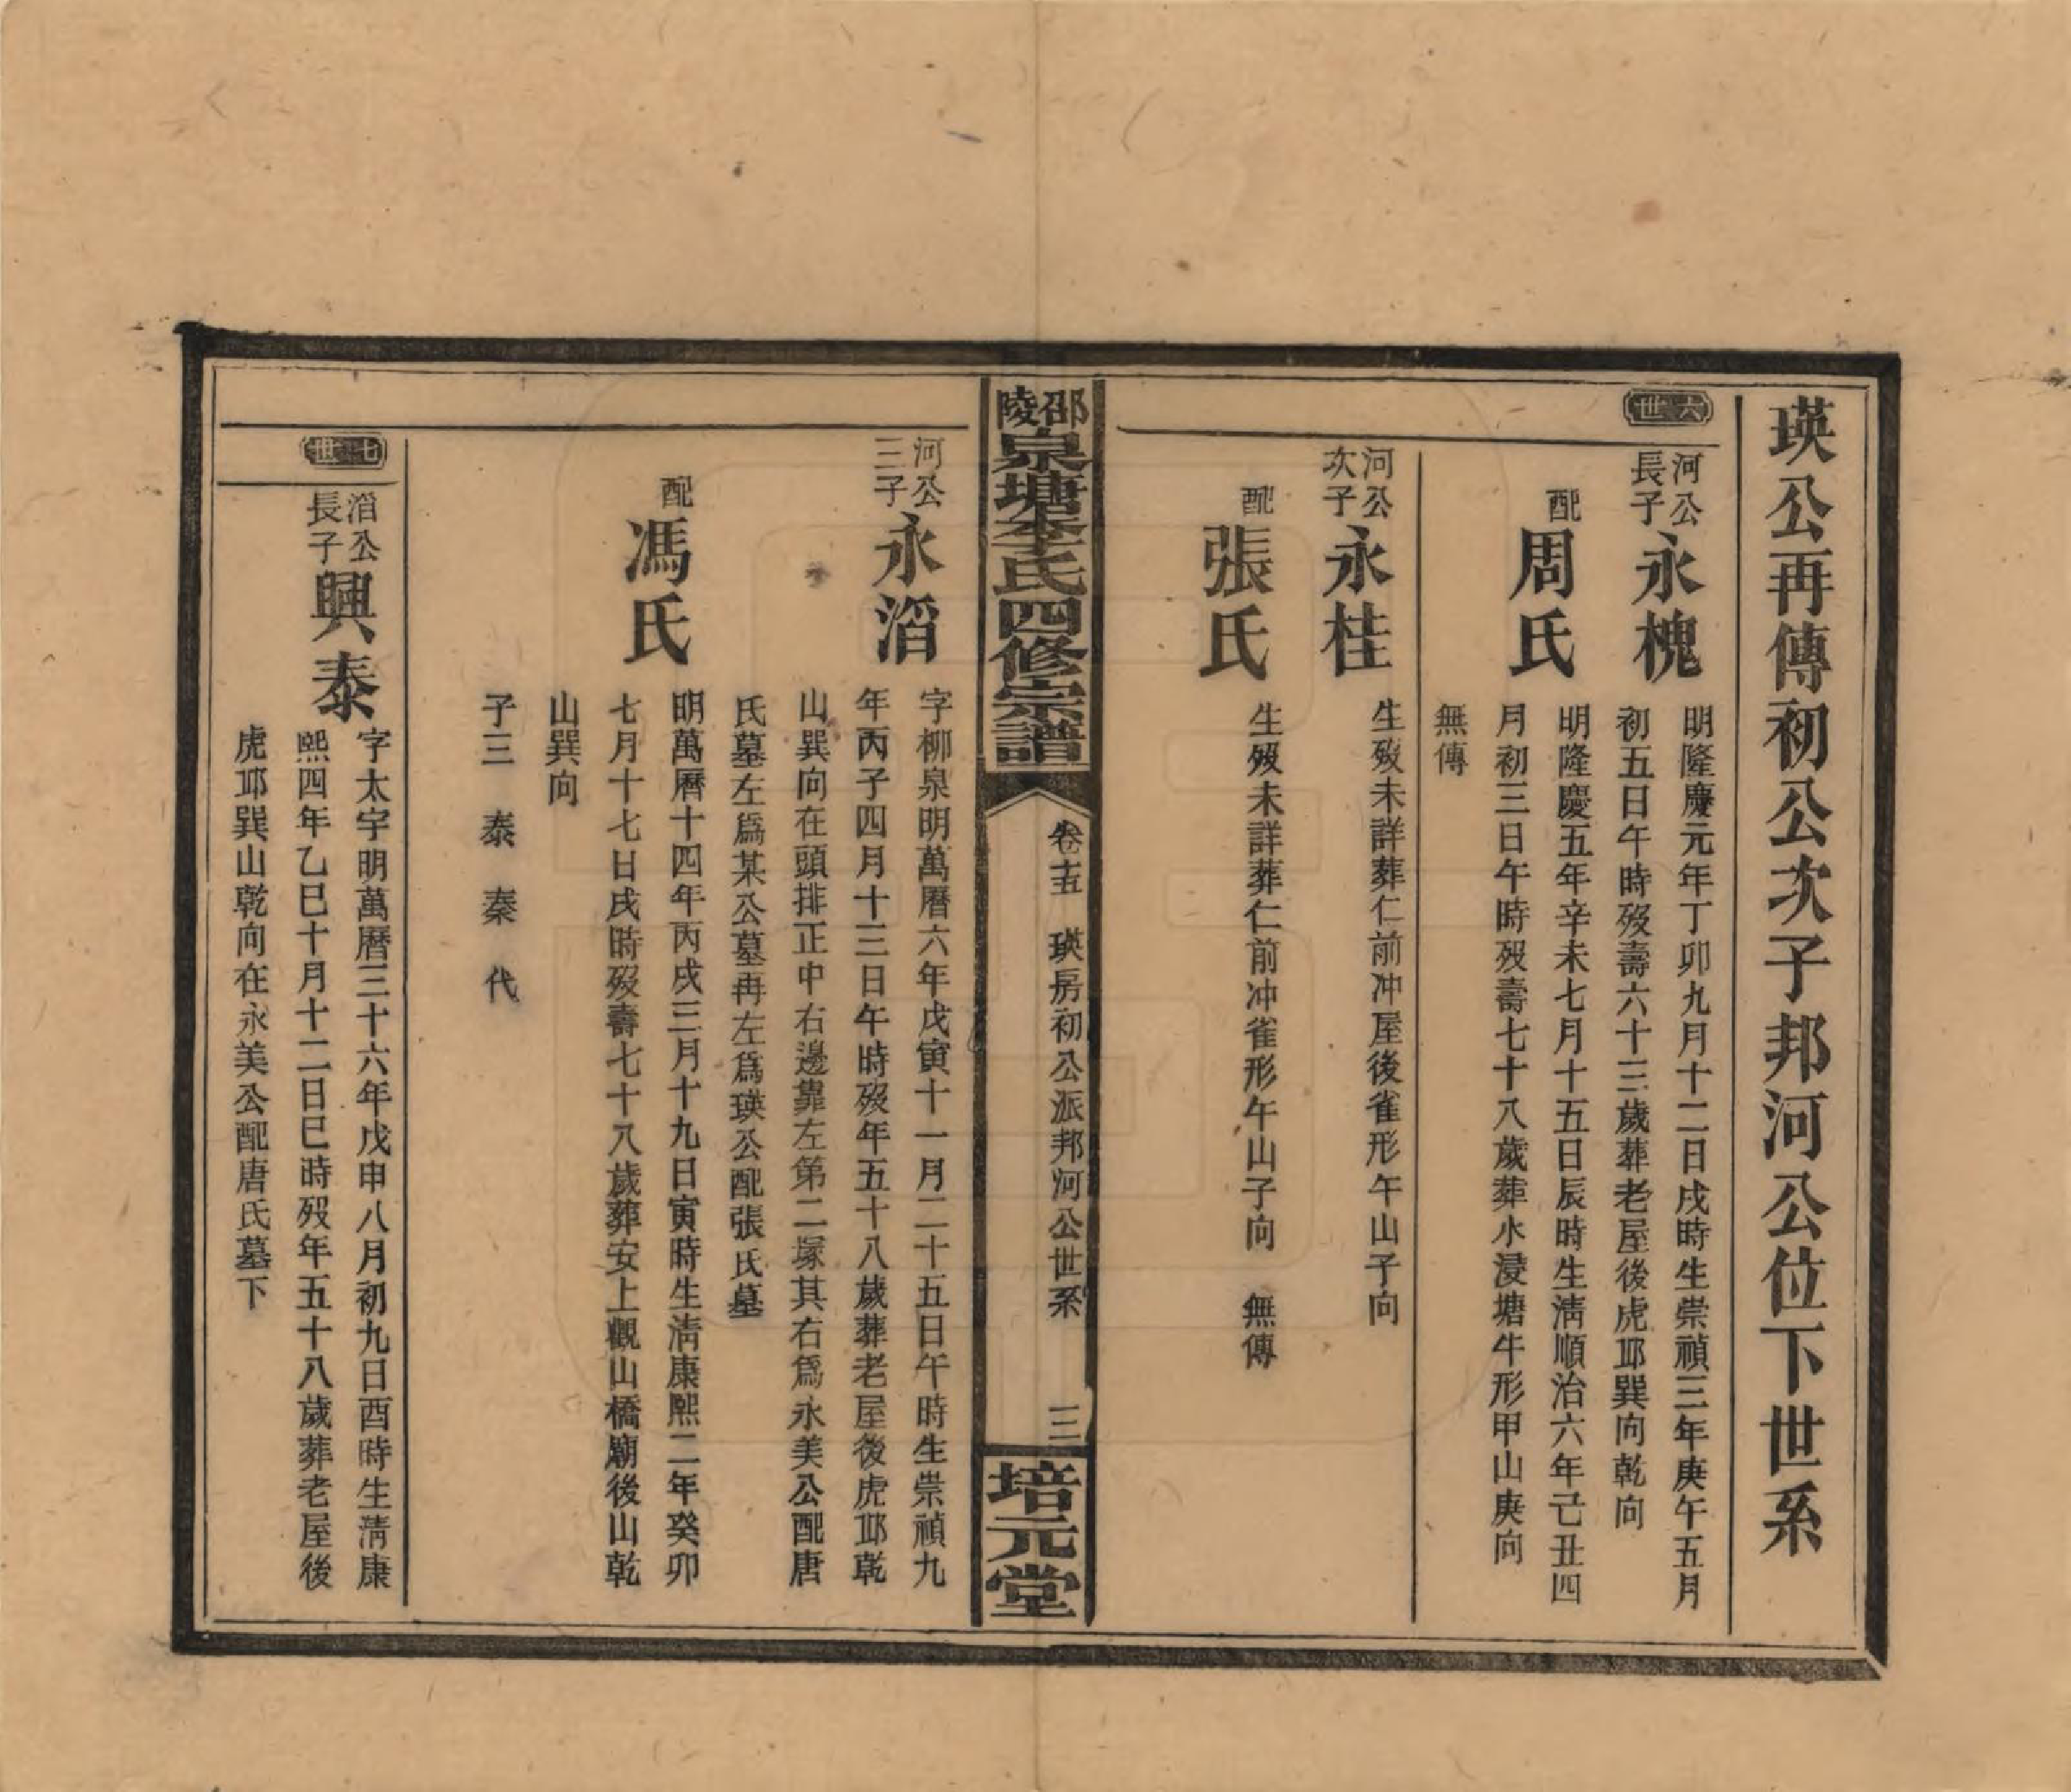 瑛公再傳初公次子邦河公位下世系
六世
河公
長子
永槐
明隆慶元年丁卯九月十二日戌時生崇禎三年庚午五月
初五日午時歿壽六十三歲葬老屋後虎邱巽向乾向
配
周氏
明隆慶五年辛未七月十五日辰時生淸順治六年己丑四
月初三日午時歿壽七十八歲葬水浸塘牛形甲山庚向
無傳
河公
次子
永桂
生歿未詳葬仁前冲屋後雀形午山子向
配
張氏
生歿未詳葬仁前冲雀形午山子向 無傳
邵陵
泉塘李氏四修宗譜
卷十五 瑛房初公派邦河公世系 三
培元堂
河公
三子
永滔
字柳泉明萬曆六年戊寅十一月二十五日午時生崇禎九
年丙子四月十三日午時歿年五十八歲葬老屋後虎邱乾
山巽向在頭排正中右邊靠左第二塚其右爲永美公配唐
氏墓左爲某公墓再左爲瑛公配張氏墓
配
馮氏
明萬曆十四年丙戌三月十九日寅時生淸康熙二年癸卯
七月十七日戌時歿壽七十八歲葬安上觀山橋廟後山乾
山巽向
子三 泰 秦 代
七世
滔公
長子
興泰
字太宇明萬曆三十六年戊申八月初九日酉時生淸康
熙四年乙巳十月十二日巳時歿年五十八歲葬老屋後
虎邱巽山乾向在永美公配唐氏墓下